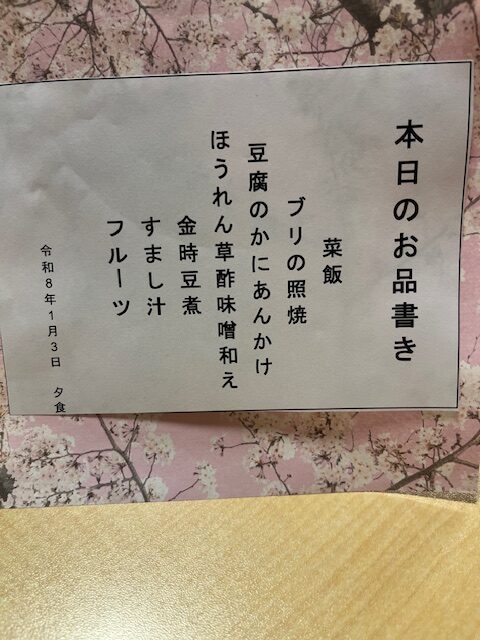 本日のお品書き
菜飯
ブリの照焼
豆腐のかにあんかけ
ほうれん草酢味噌和え
金時豆煮
すまし汁
フルーツ
令和8年1月3日 夕食